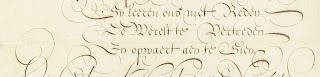 Sy leeren ons met Reden
De Werelt te Vertreden
En opwaert aen te Sien